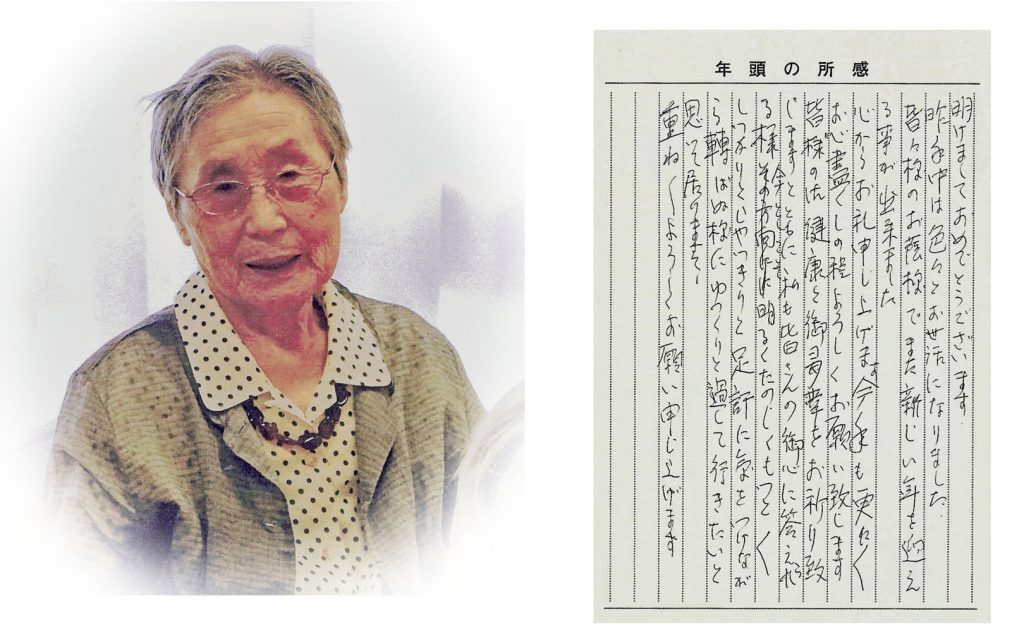 年頭の所感
明けましておめでとうございます
昨年中は色々とお世話になりました
皆々様のお蔭様でまた新しい年を迎え
る事が出来ました
心からお礼申し上げます今年も更に
お心盡くしの程よろしくお願い致します
皆様の御健康と御多幸をお祈り致
しますとともに私も皆さんの御心に答えられ
る様 その方向に明るくたのしく
しっかりとしゃっきりと足許に気をつけなが
ら轉ばぬ様にゆっくりと過して行きたいと
思って居ります
重ね〱よろしくお願い申し上げます